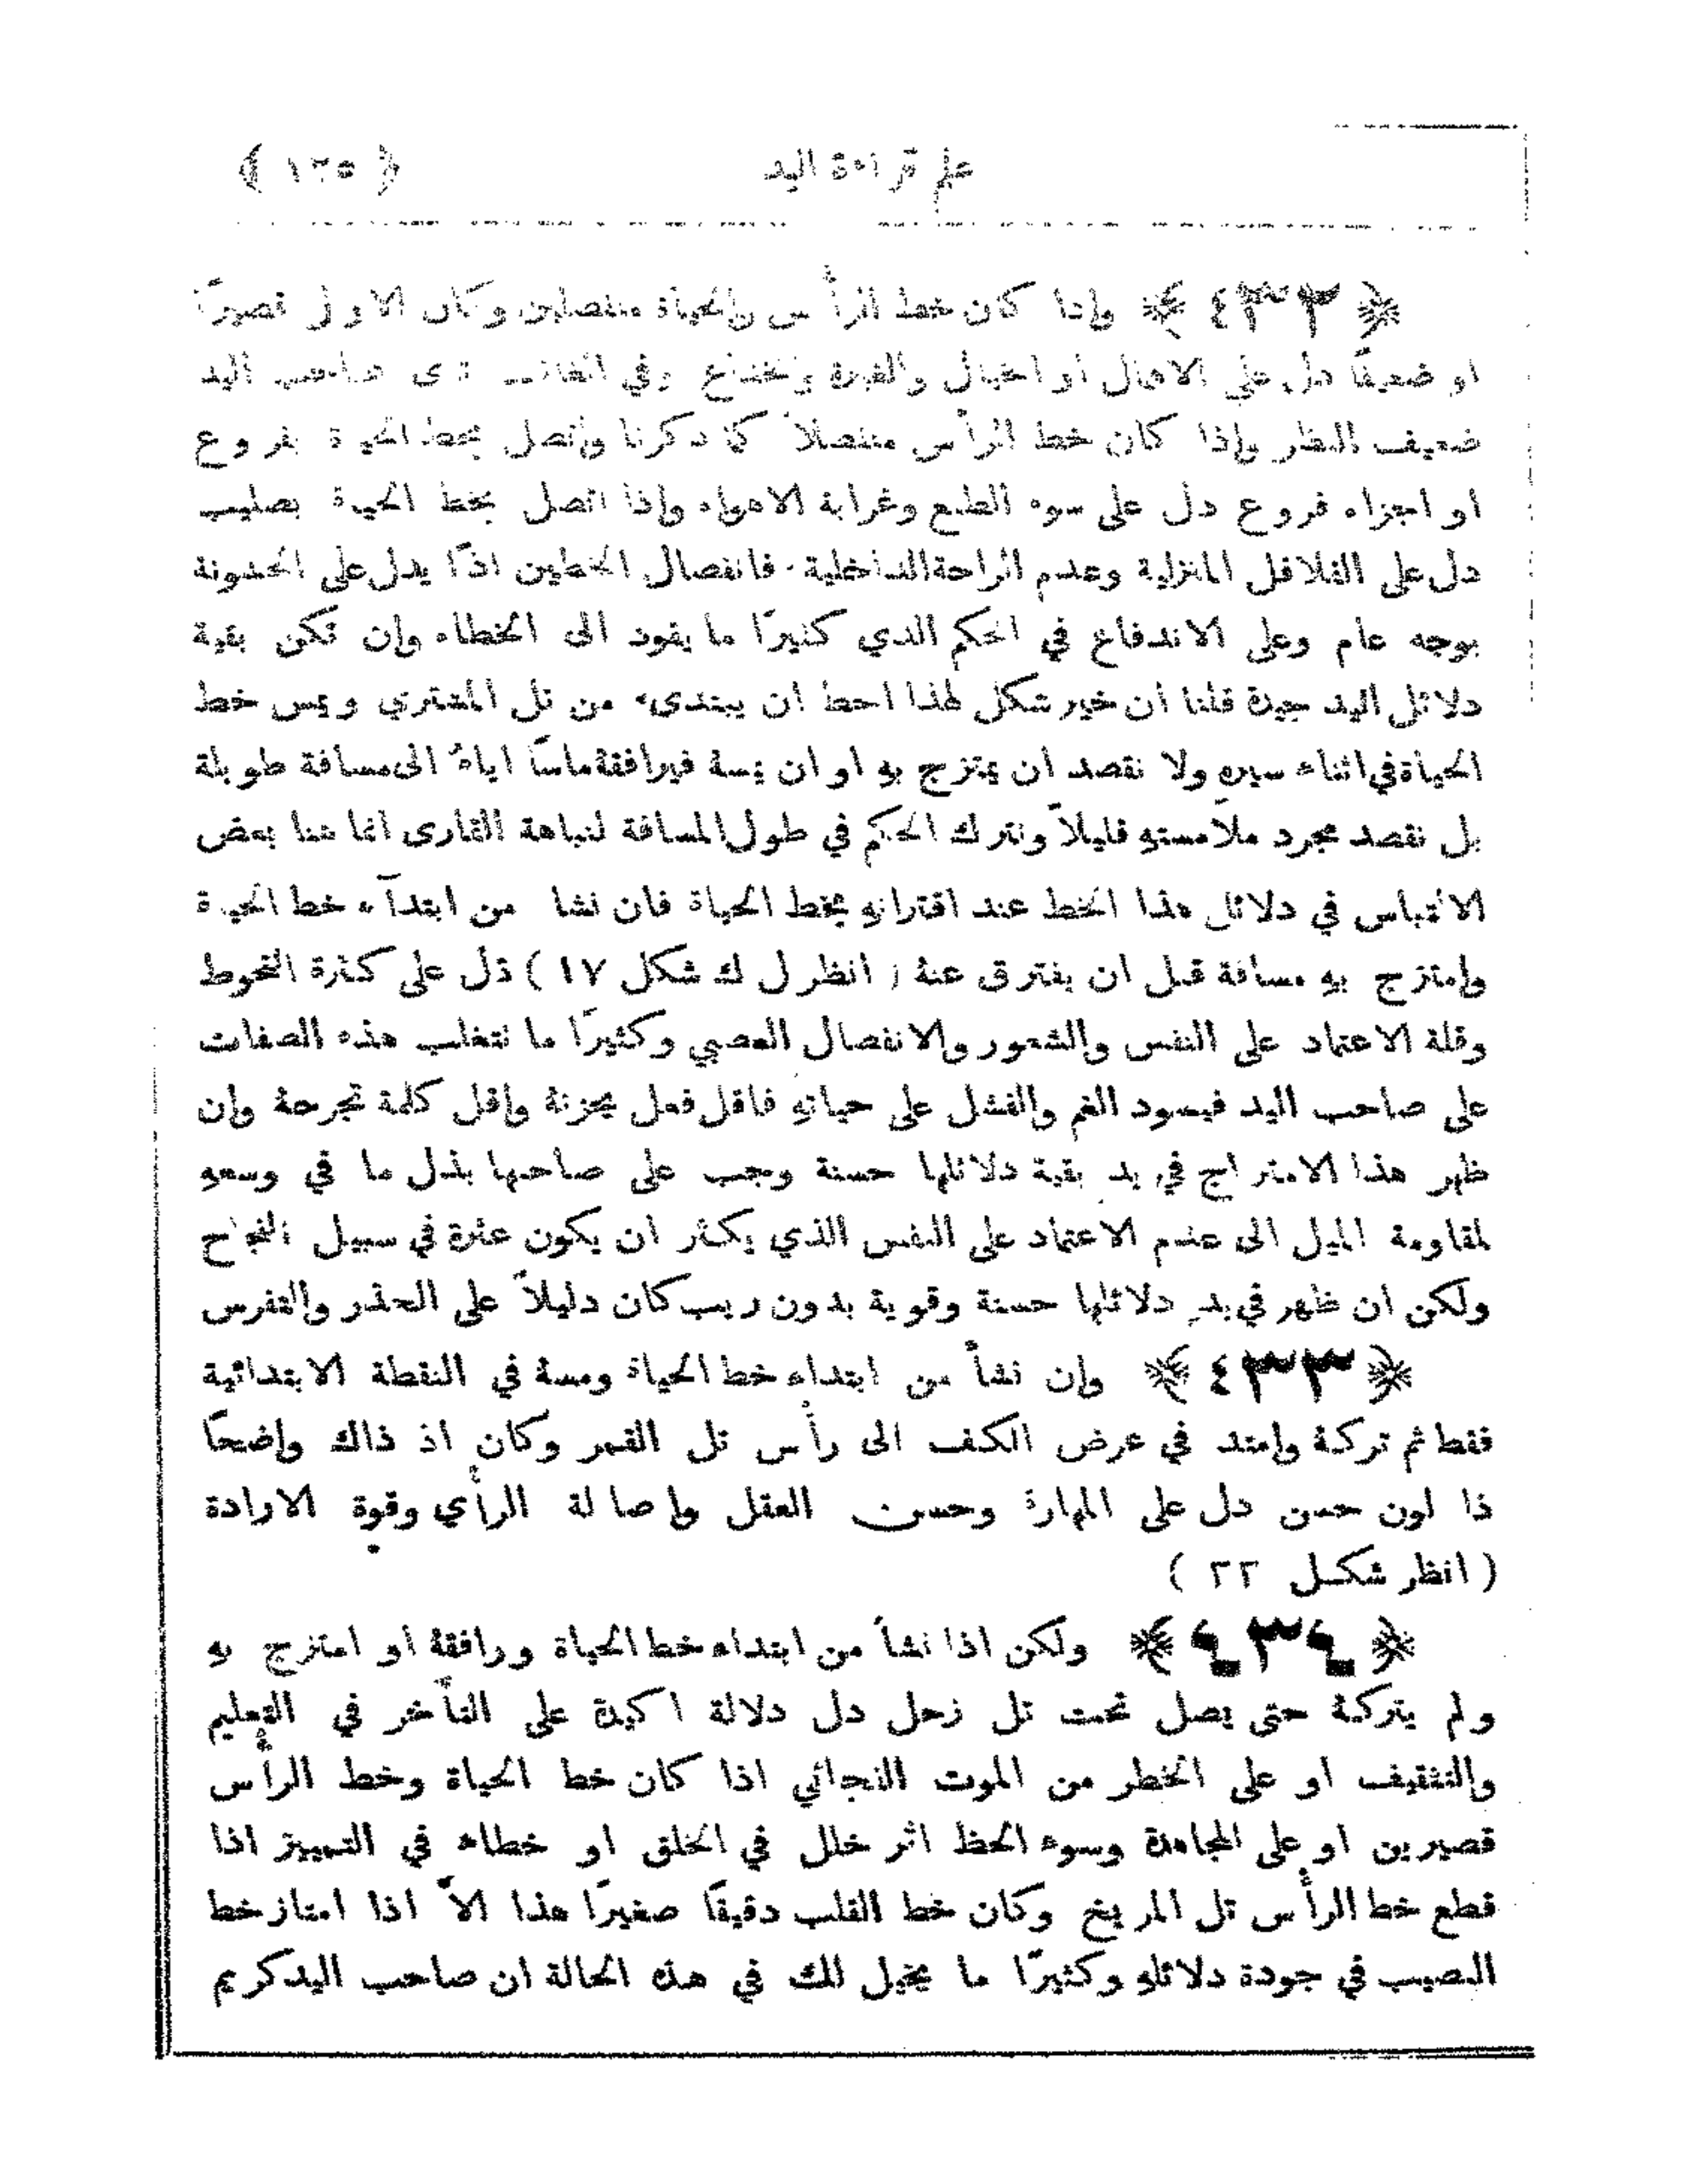 علم قراءة اليد ﴿ ١٣٥ ﴾
﴿ ٤٣٢ ﴾ واذا كان خط الرأس والحياة منفصلين وكان الاول قصيرًا
او ضعيفًا دل على الاهمال او الخيال والغيرة والخداع وفي ترى صاحب اليد
ضعيف النظر واذا كان خط الرأس منفصلاً كما ذكرنا واتصل بخط الحياة بفروع
او اجزاء فروع دل على سوء الطبع وغرابة الاهواء واذا اتصل بخط الحياة بصليب
دل على القلاقل المنزلية وعدم الراحة الداخلية . فانفصال الخطين اذًا يدل على الخشونة
بوجه عام وعلى الاندفاع في الحكم الذي كثيرًا ما يقود الى الخطاء وان تكن بقية
دلائل اليد جيدة قلنا ان خير شكل لهذا احط ان يبتدىء من تل المشتري ويمس خط
الحياة في اثناء سيره ولا نقصد ان يمتزج به او ان يمسهُ فيرافقهُ ماسًا اياهُ الى مسافة طويلة
بل نقصد مجرد ملامسته قليلاً ونترك الحكم في طول المسافة لنباهة القارى انما هنا بعض
الاقتباس في دلائل هذا الخط عند اقترانه بخط الحياة فان نشا من ابتدآء خط الحياة
وامتزج به مسافة قبل ان يفترق عنهُ ( انظر ل ك شكل ١٧ ) دل على كثرة التحوط
وقلة الاعتماد على النفس والشعور والانفصال العصبي وكثيرًا ما تتغلب هذه الصفات
على صاحب اليد فيسود الغم والفشل على حياته فاقل فعل يحزنهُ واقل كلمة تجرحهُ وان
ظهر هذا الامتزاج في يد بقية دلائلها حسنة وجب على صاحبها بذل ما في وسعه
لمقاومة الميل الى عدم الاعتماد على النفس الذي يكثر ان يكون عثرة في سبيل النجاح
ولكن ان ظهر في يدٍ دلائلها حسنة وقوية بدون ريب كان دليلاً على الحذر والتفرس
﴿ ٤٣٣ ﴾ وان نشأ من ابتداء خط الحياة ومسهُ في النقطة الابتدائية
فقط ثم تركهُ وامتد في عرض الكف الى رأس تل القمر وكان اذ ذاك واضحًا
ذا لون حسن دل على المهارة وحسن العقل واصالة الرأي وقوة الارادة
( انظر شكل ٢٢ )
﴿ ٤٣٤ ﴾ ولكن اذا نشأ من ابتداء خط الحياة ورافقهُ او امتزج به
ولم يتركهُ حتى يصل تحت تل زحل دل دلالة اكيدة على التأخر في التعليم
والتثقيف او على الخطر من الموت الفجائي اذا كان خط الحياة وخط الرأس
قصيرين او على المجاهدة وسوء الحظ اثر خلل في الخلق او خطاء في التمييز اذا
قطع خط الرأس تل المريخ وكان خط القلب دقيقًا صغيرًا هذا الاّ اذا امتاز خط
النصيب في جودة دلائله وكثيرًا ما يخيل لك في هذه الحالة ان صاحب اليد كريم